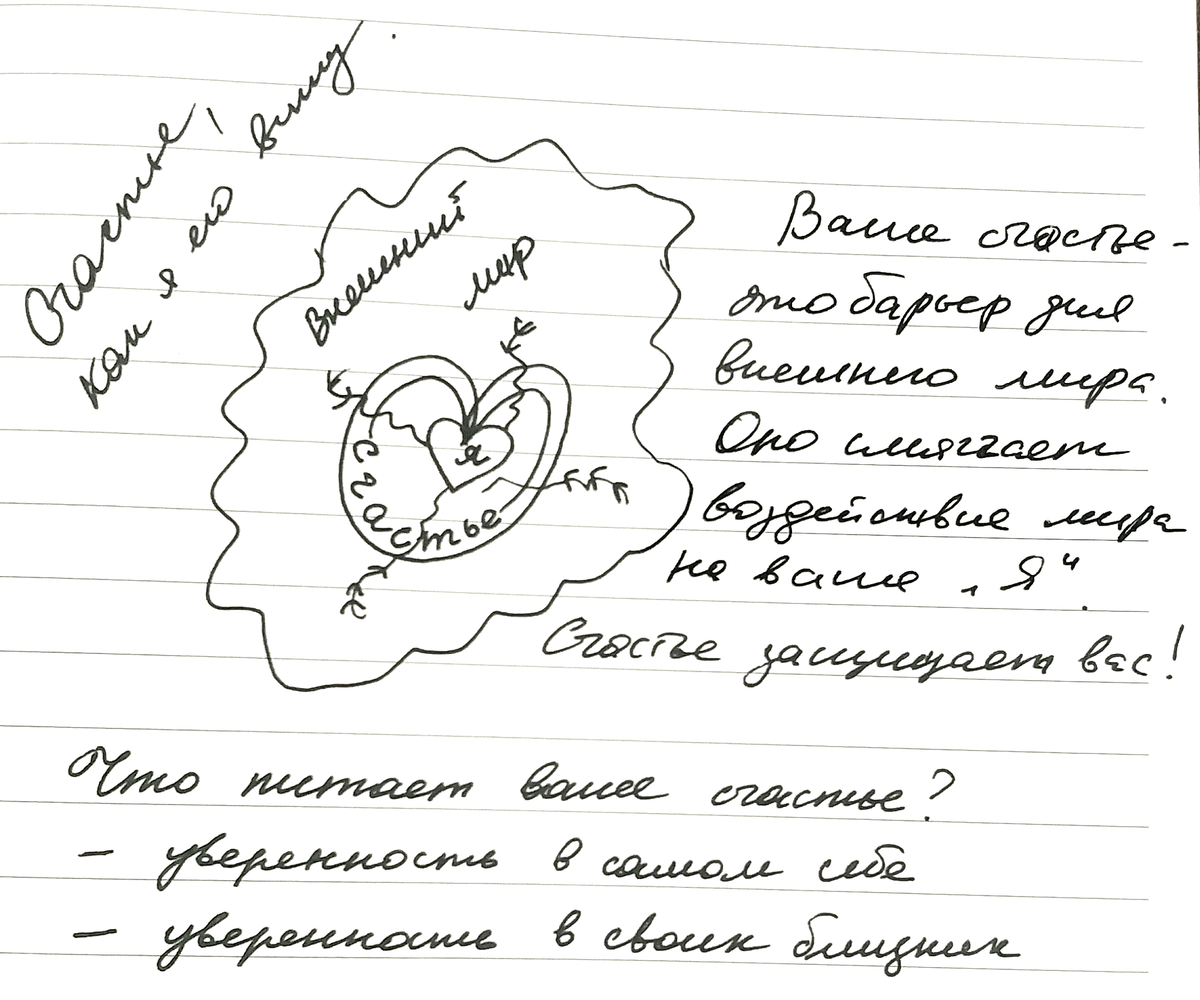 Счастье,
как я его вижу.
Внешний
мир
я
счастье
Ваше счастье -
это барьер для
внешнего мира.
Оно смягчает
воздействие мира
на ваше „Я“.
Счастье защищает вас!
Что питает ваше счастье?
- уверенность в самом себе
- уверенность в своих близких